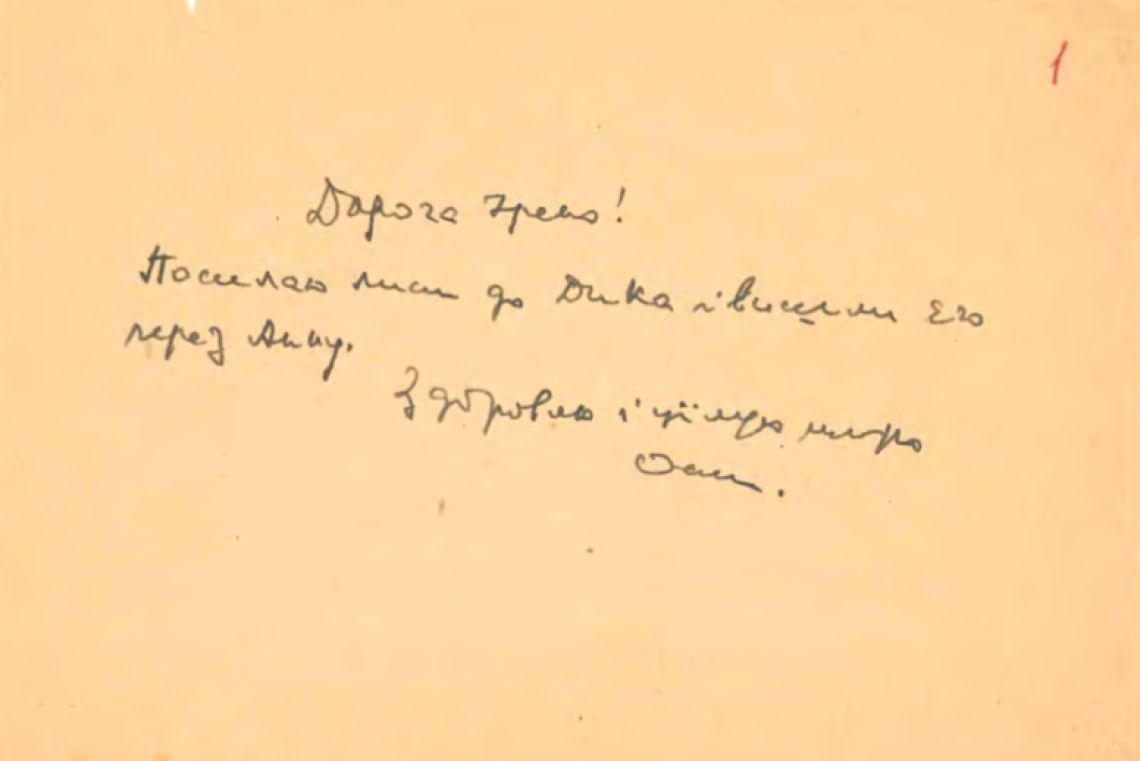 1
Дорога Ірено!
Посилаю лист до Дика і вишли Его
через Анну.
Здоровлю і цілую щиро
Осип.